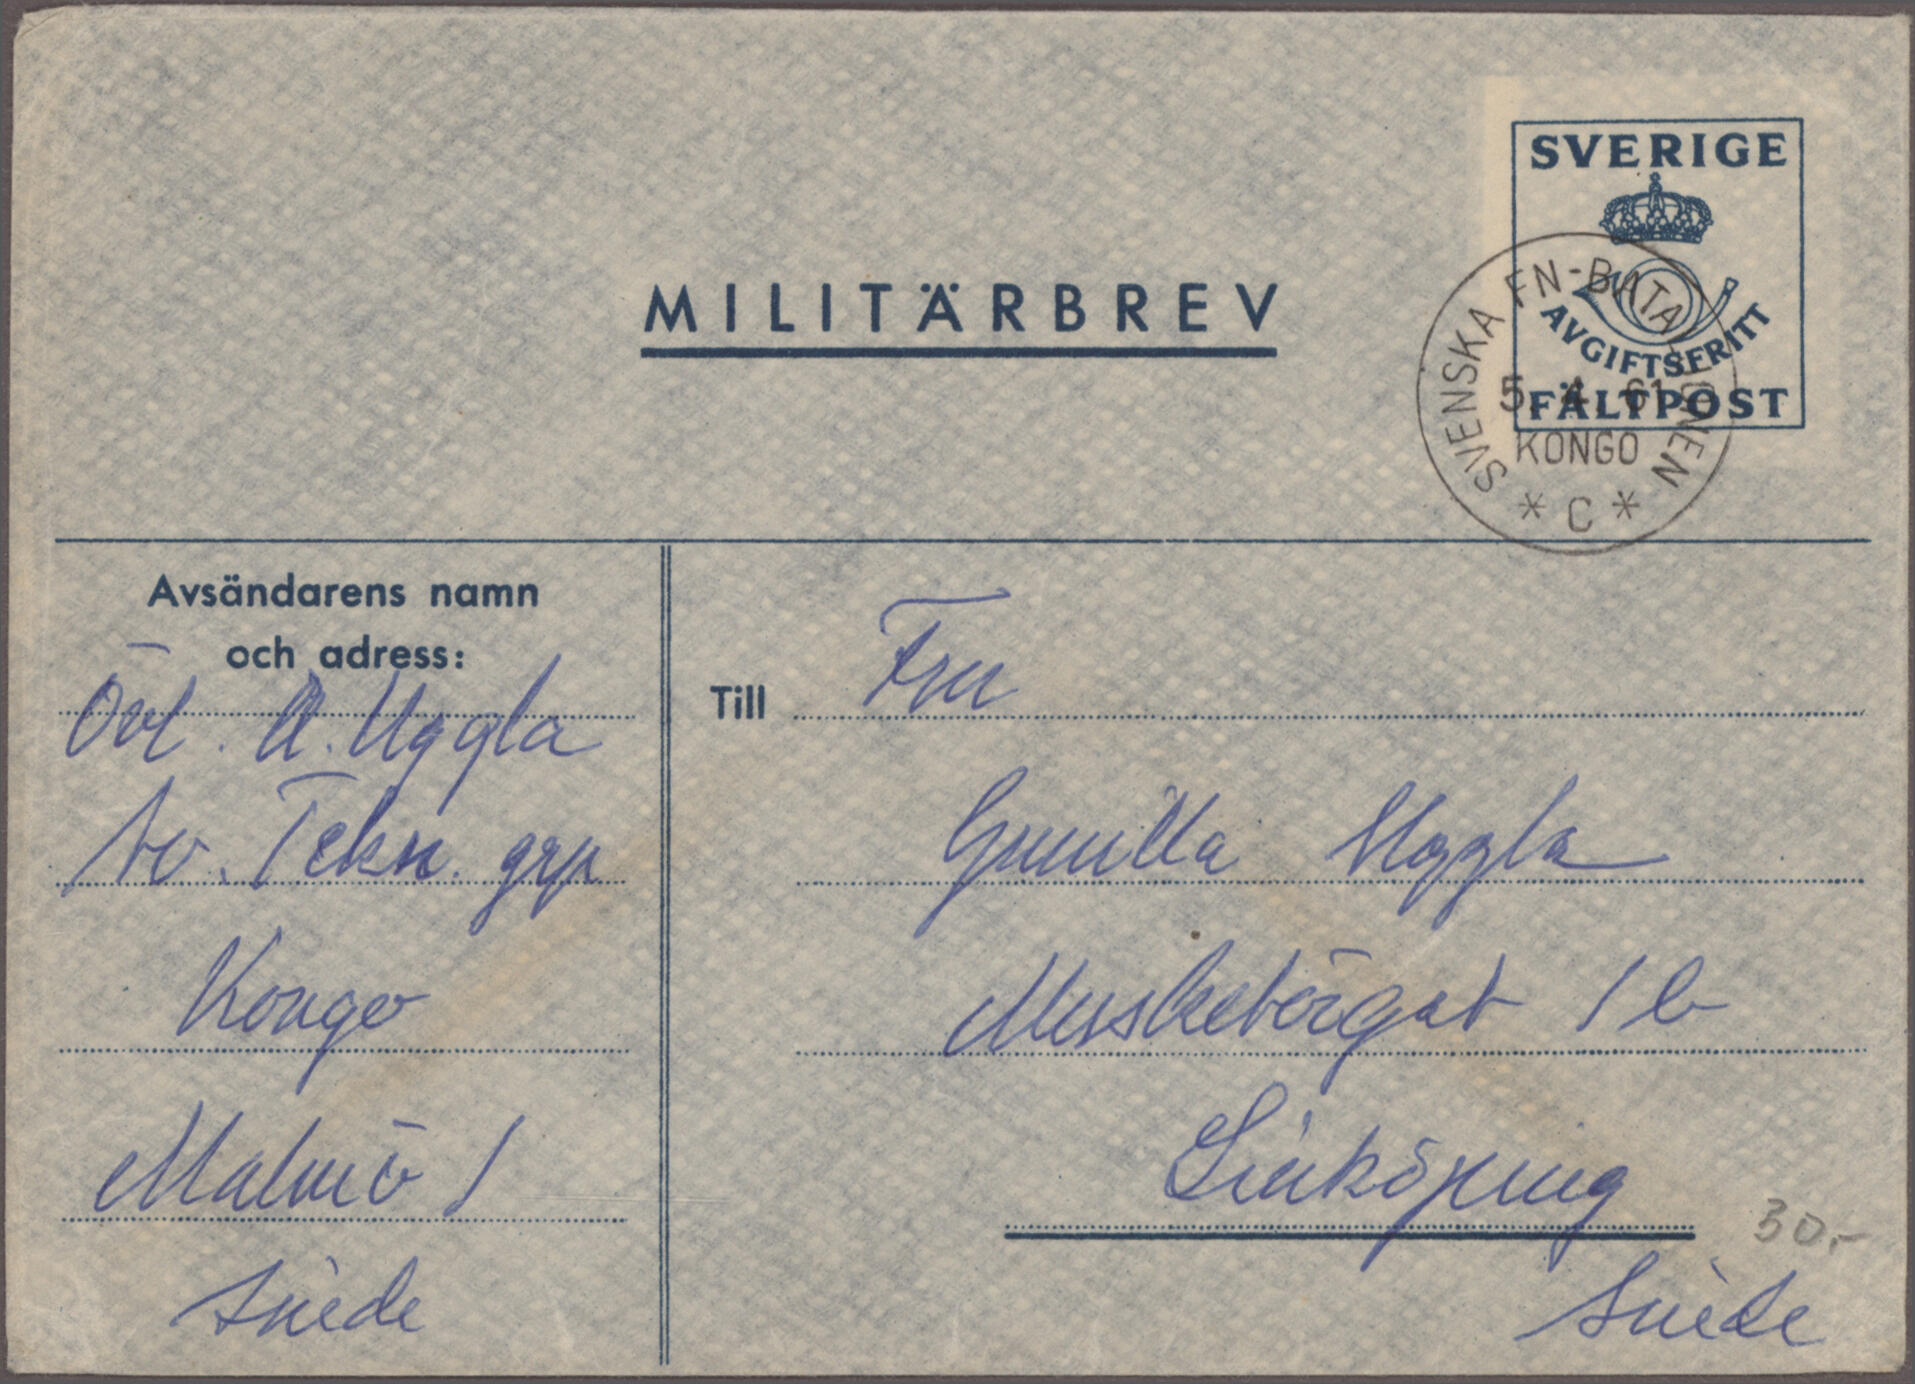 SVERIGE
AVGIFTSFRITT
FÄLTPOST
SVENSKA FN-BATALJONEN
5. 4. 61
KONGO
* C *
MILITÄRBREV
Avsändarens namn
och adress:
Övl. A. Uggla
Sv. Tekn. grp
Kongo
Malmö 1
Suède
Till Fru
Gunilla Uggla
Musketörgat 1 b
Linköping
Suède
30.-